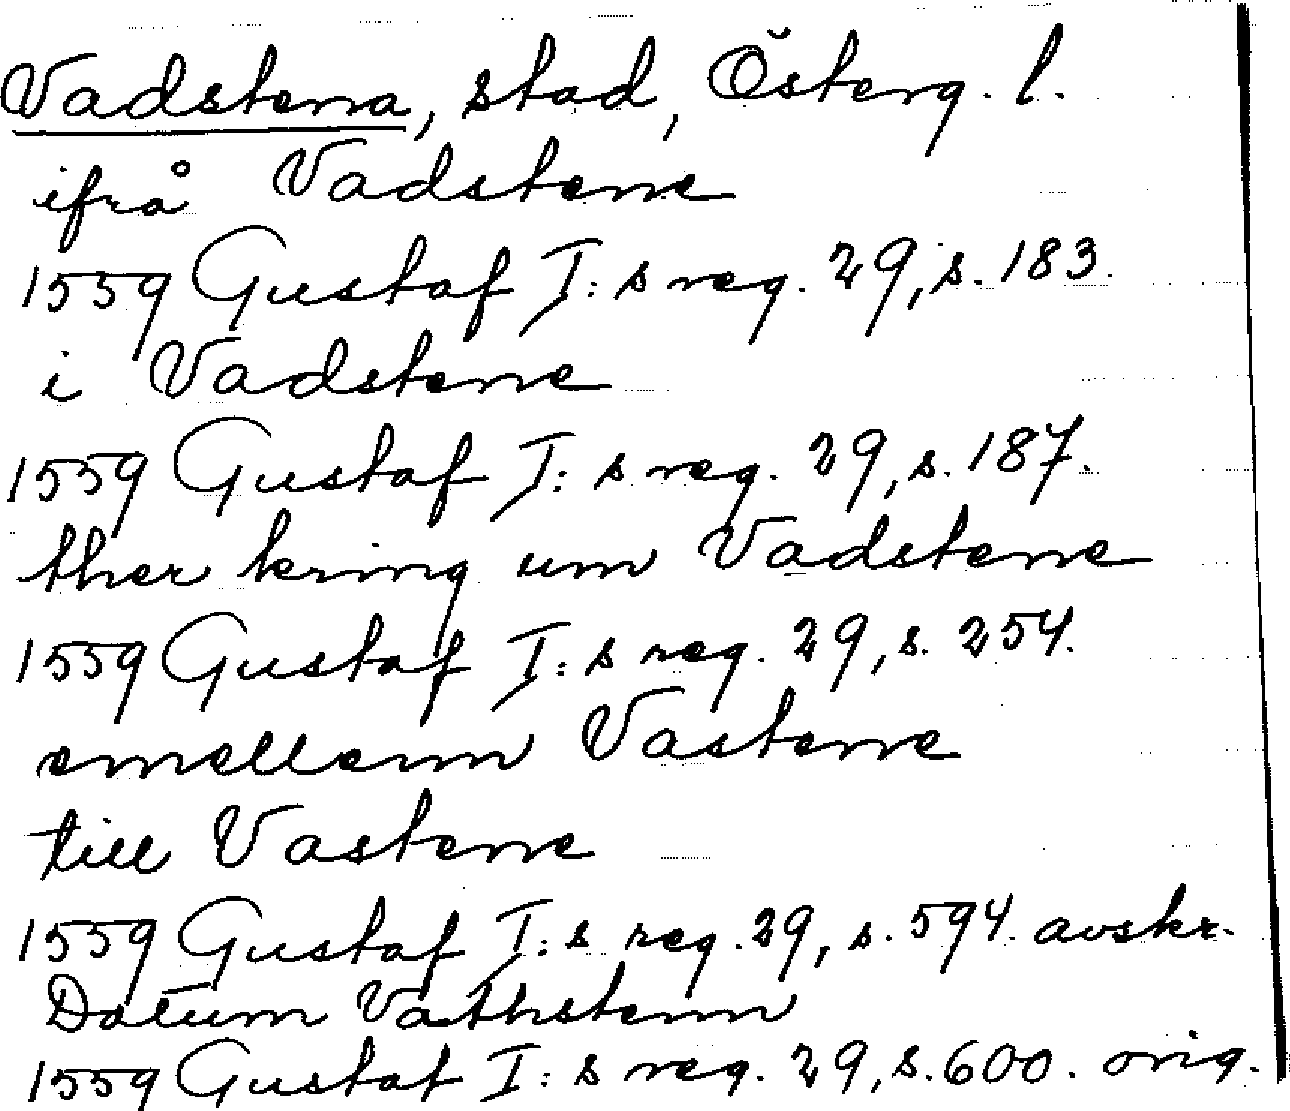 Vadstena, stad, Österg. l.
ifrå Vadstene
1559 Gustaf I: s reg. 29, s. 183.
i Vadstene
1559 Gustaf I: s reg. 29, s. 187.
ther kring um Vadstene
1559 Gustaf I: s reg. 29, s. 254.
emellenn Vastene
till Vastene
1559 Gustaf I: s reg. 29, s. 594. avskr.
Datum Vathstenn
1559 Gustaf I: s reg. 29, s. 600. orig.